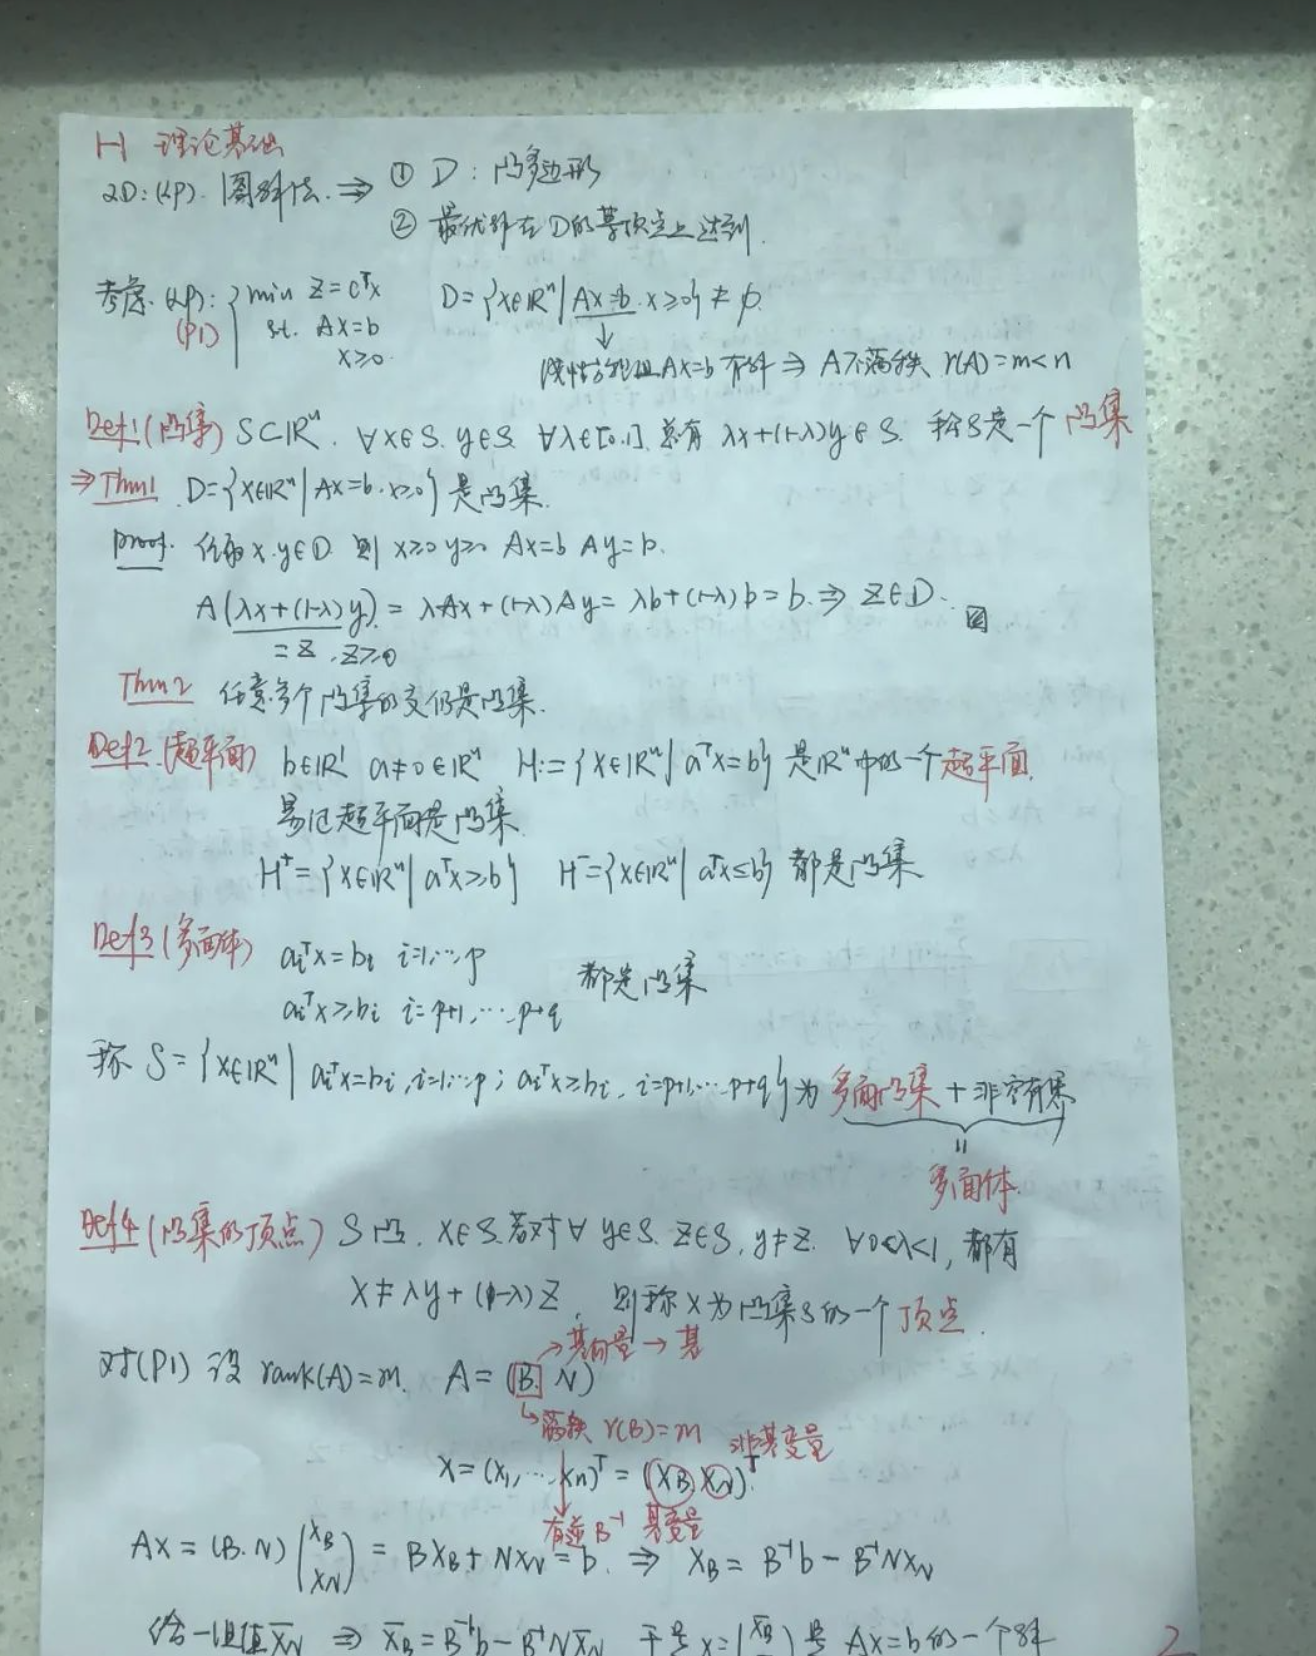 H 理论基础
2D:(LP). 图解法. ⇒ ① D: 凸多边形
② 最优解在D的某顶点上达到.
考虑. (LP): { min Z=cᵀx D={x∈ℝⁿ| Ax=b. x≥0} ≠ ∅.
(P1) s.t. Ax=b ↓
x≥0. 线性方程组Ax=b有解 ⇒ A不满秩 r(A)=m<n
Def1(凸集) S⊂ℝⁿ. ∀x∈S. y∈S. ∀λ∈[0,1]. 总有 λx+(1-λ)y∈S. 称S是一个凸集
⇒Thm1 D={x∈ℝⁿ| Ax=b. x≥0} 是凸集.
proof. 任取x.y∈D. 则 x≥0 y≥0 Ax=b Ay=b.
A(λx+(1-λ)y) = λAx+(1-λ)Ay= λb+(1-λ)b=b. ⇒ Z∈D.
=Z, Z≥0
Thm2 任意多个凸集的交仍是凸集.
Def2 (超平面) b∈ℝ¹ a≠0∈ℝⁿ H:={x∈ℝⁿ| aᵀx=b} 是ℝⁿ中的一个超平面.
易证超平面是凸集.
H⁺={x∈ℝⁿ| aᵀx≥b} H⁻={x∈ℝⁿ| aᵀx≤b} 都是凸集
Def3 (多面体) aᵢᵀx=bᵢ i=1,…,p
都是凸集
aᵢᵀx≥bᵢ i=p+1,…,p+q
称 S={x∈ℝⁿ| aᵢᵀx=bᵢ, i=1,…,p; aᵢᵀx≥bᵢ, i=p+1,…,p+q} 为 多面凸集 + 非空有界
=
多面体.
Def4 (凸集的顶点) S凸. x∈S. 若对∀ y∈S. Z∈S, y≠Z. ∀0<λ<1, 都有
x≠λy+(1-λ)Z, 则称x为凸集S的一个顶点.
→基向量→基
对(P1) 设 rank(A)=m. A=(B. N)
↳满秩 r(B)=m 非基变量
x=(x₁,…,xₙ)ᵀ = (x_B, x_N)ᵀ.
有逆B⁻¹ 基变量
Ax=(B.N)(x_B x_N) = Bx_B+Nx_N=b. ⇒ x_B= B⁻¹b-B⁻¹Nx_N
给一组值x̄_N ⇒ x̄_B=B⁻¹b-B⁻¹Nx̄_N 于是x=(x̄_B ) 是 Ax=b的一个解
2